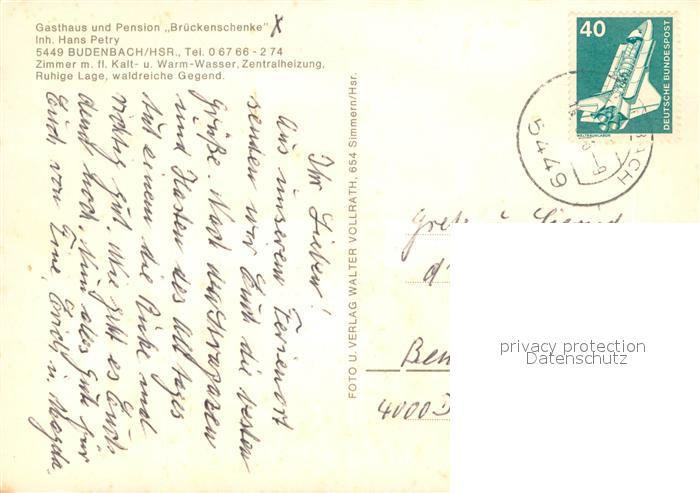 Gasthaus und Pension „Brückenschenke"
Inh. Hans Petry
5449 BUDENBACH/HSR., Tel. 0 67 66 - 2 74
Zimmer m. fl. Kalt- u. Warm-Wasser, Zentralheizung,
Ruhige Lage, waldreiche Gegend.
Ihr Lieben!
Aus unserem Ferienort
senden wir Euch die besten
Grüße. Nach den Strapazen
und Hasten des Alltages
tut einem die Ruhe mal
richtig gut. Wie geht es Euch
denn noch. Nun alles Gute für
Euch von Eine, Erich u. Magda
FOTO U. VERLAG WALTER VOLLRATH, 654 Simmern/Hsr.
40
DEUTSCHE BUNDESPOST
WELTRAUMLABOR
BACH
5449
Gret u.
d'
Ben
4000 D
privacy protection
Datenschutz